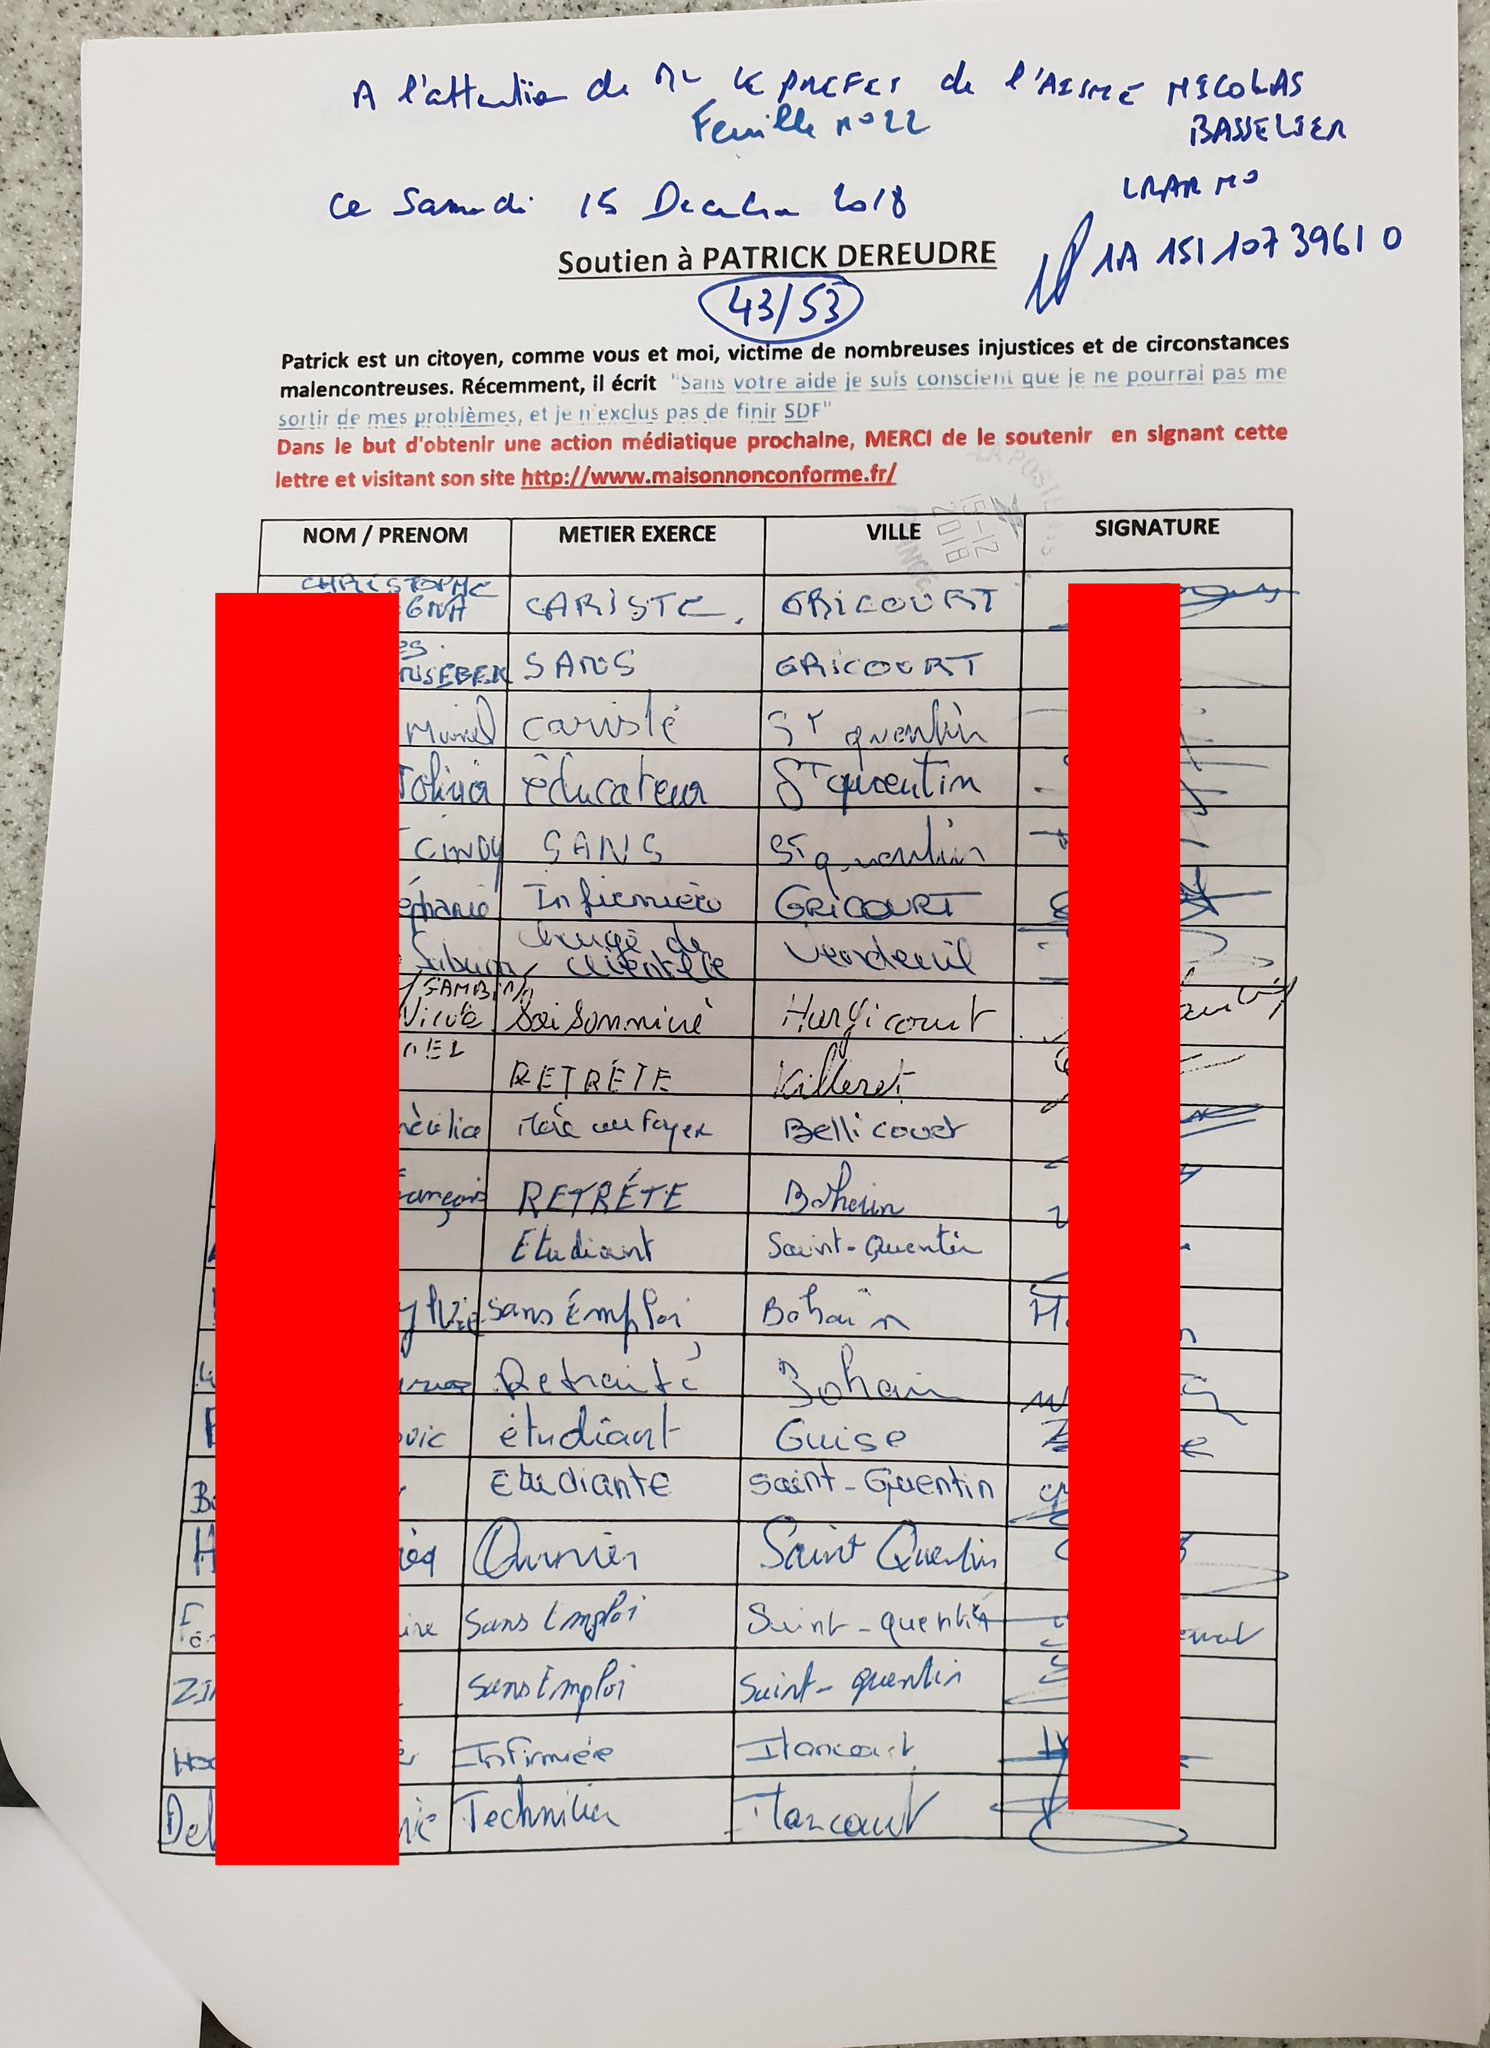 A l'attention de Mr LE PREFET de l'AISNE NICOLAS
BASSELIER
Feuille n°22
LRAR N°
Ce Samedi 15 Decembre 2018
1A 151 107 3961 0
Soutien à PATRICK DEREUDRE
43/53
Patrick est un citoyen, comme vous et moi, victime de nombreuses injustices et de circonstances
malencontreuses. Récemment, il écrit "Sans votre aide je suis conscient que je ne pourrai pas me
sortir de mes problèmes, et je n'exclus pas de finir SDF"
Dans le but d'obtenir une action médiatique prochaine, MERCI de le soutenir en signant cette
lettre et visitant son site http://www.maisonnonconforme.fr/
LA POSTE
15-12
2018
NOM / PRENOM METIER EXERCE VILLE SIGNATURE
CHRISTOPHE
CARISTE. GRICOURT
SANS GRICOURT
cariste St quentin
éducateur St quentin
CINDY SANS St quentin
Infirmière GRICOURT
chargé de
clientèle Vendeuil
Hargicourt
RETRÉTE Villeret
Mère au Foyer Bellicourt
RETRÉTE Bohain
Etudiant Saint-Quentin
sans Emploi Bohain
Retraité Bohain
étudiant Guise
Etudiante Saint-Quentin
Ouvrier Saint Quentin
Sans Emploi Saint-quentin
ZI Sans Emploi Saint-quentin
Infirmière Itancourt
Del Technicien Itancourt